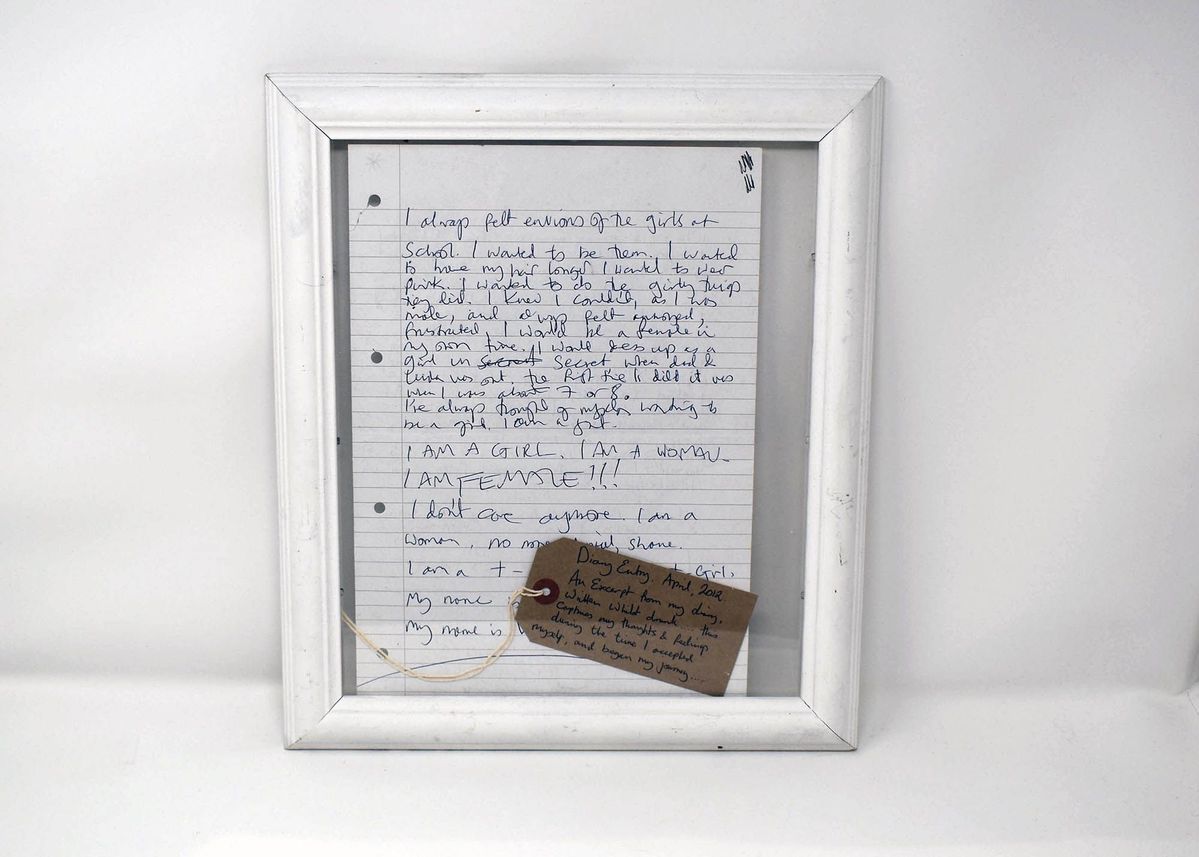 I always felt envious of the girls at
School. I wanted to be them. I wanted
to have my hair longer I wanted to wear
pink. I wanted to do the girly things
they did. I knew I couldn't, as I was
male, and always felt annoyed,
frustrated. I would be a female in
my own time. I would dress up as a
girl in secret Secret when dad &
was out. The first time I did it was
when I was about 7 or 8.
I've always thought of myself wanting to
be a girl. I am a girl.
I AM A GIRL. I AM A WOMAN
I AM FEMALE!!!
I don't care anymore. I am a
woman, no more shame.
I am a t- girl.
My name
My name is
Diary Entry. April, 2012
An Excerpt from my diary,
Written whilst drunk... this
captures my thoughts & feelings
during the time I accepted
myself, and began my journey....